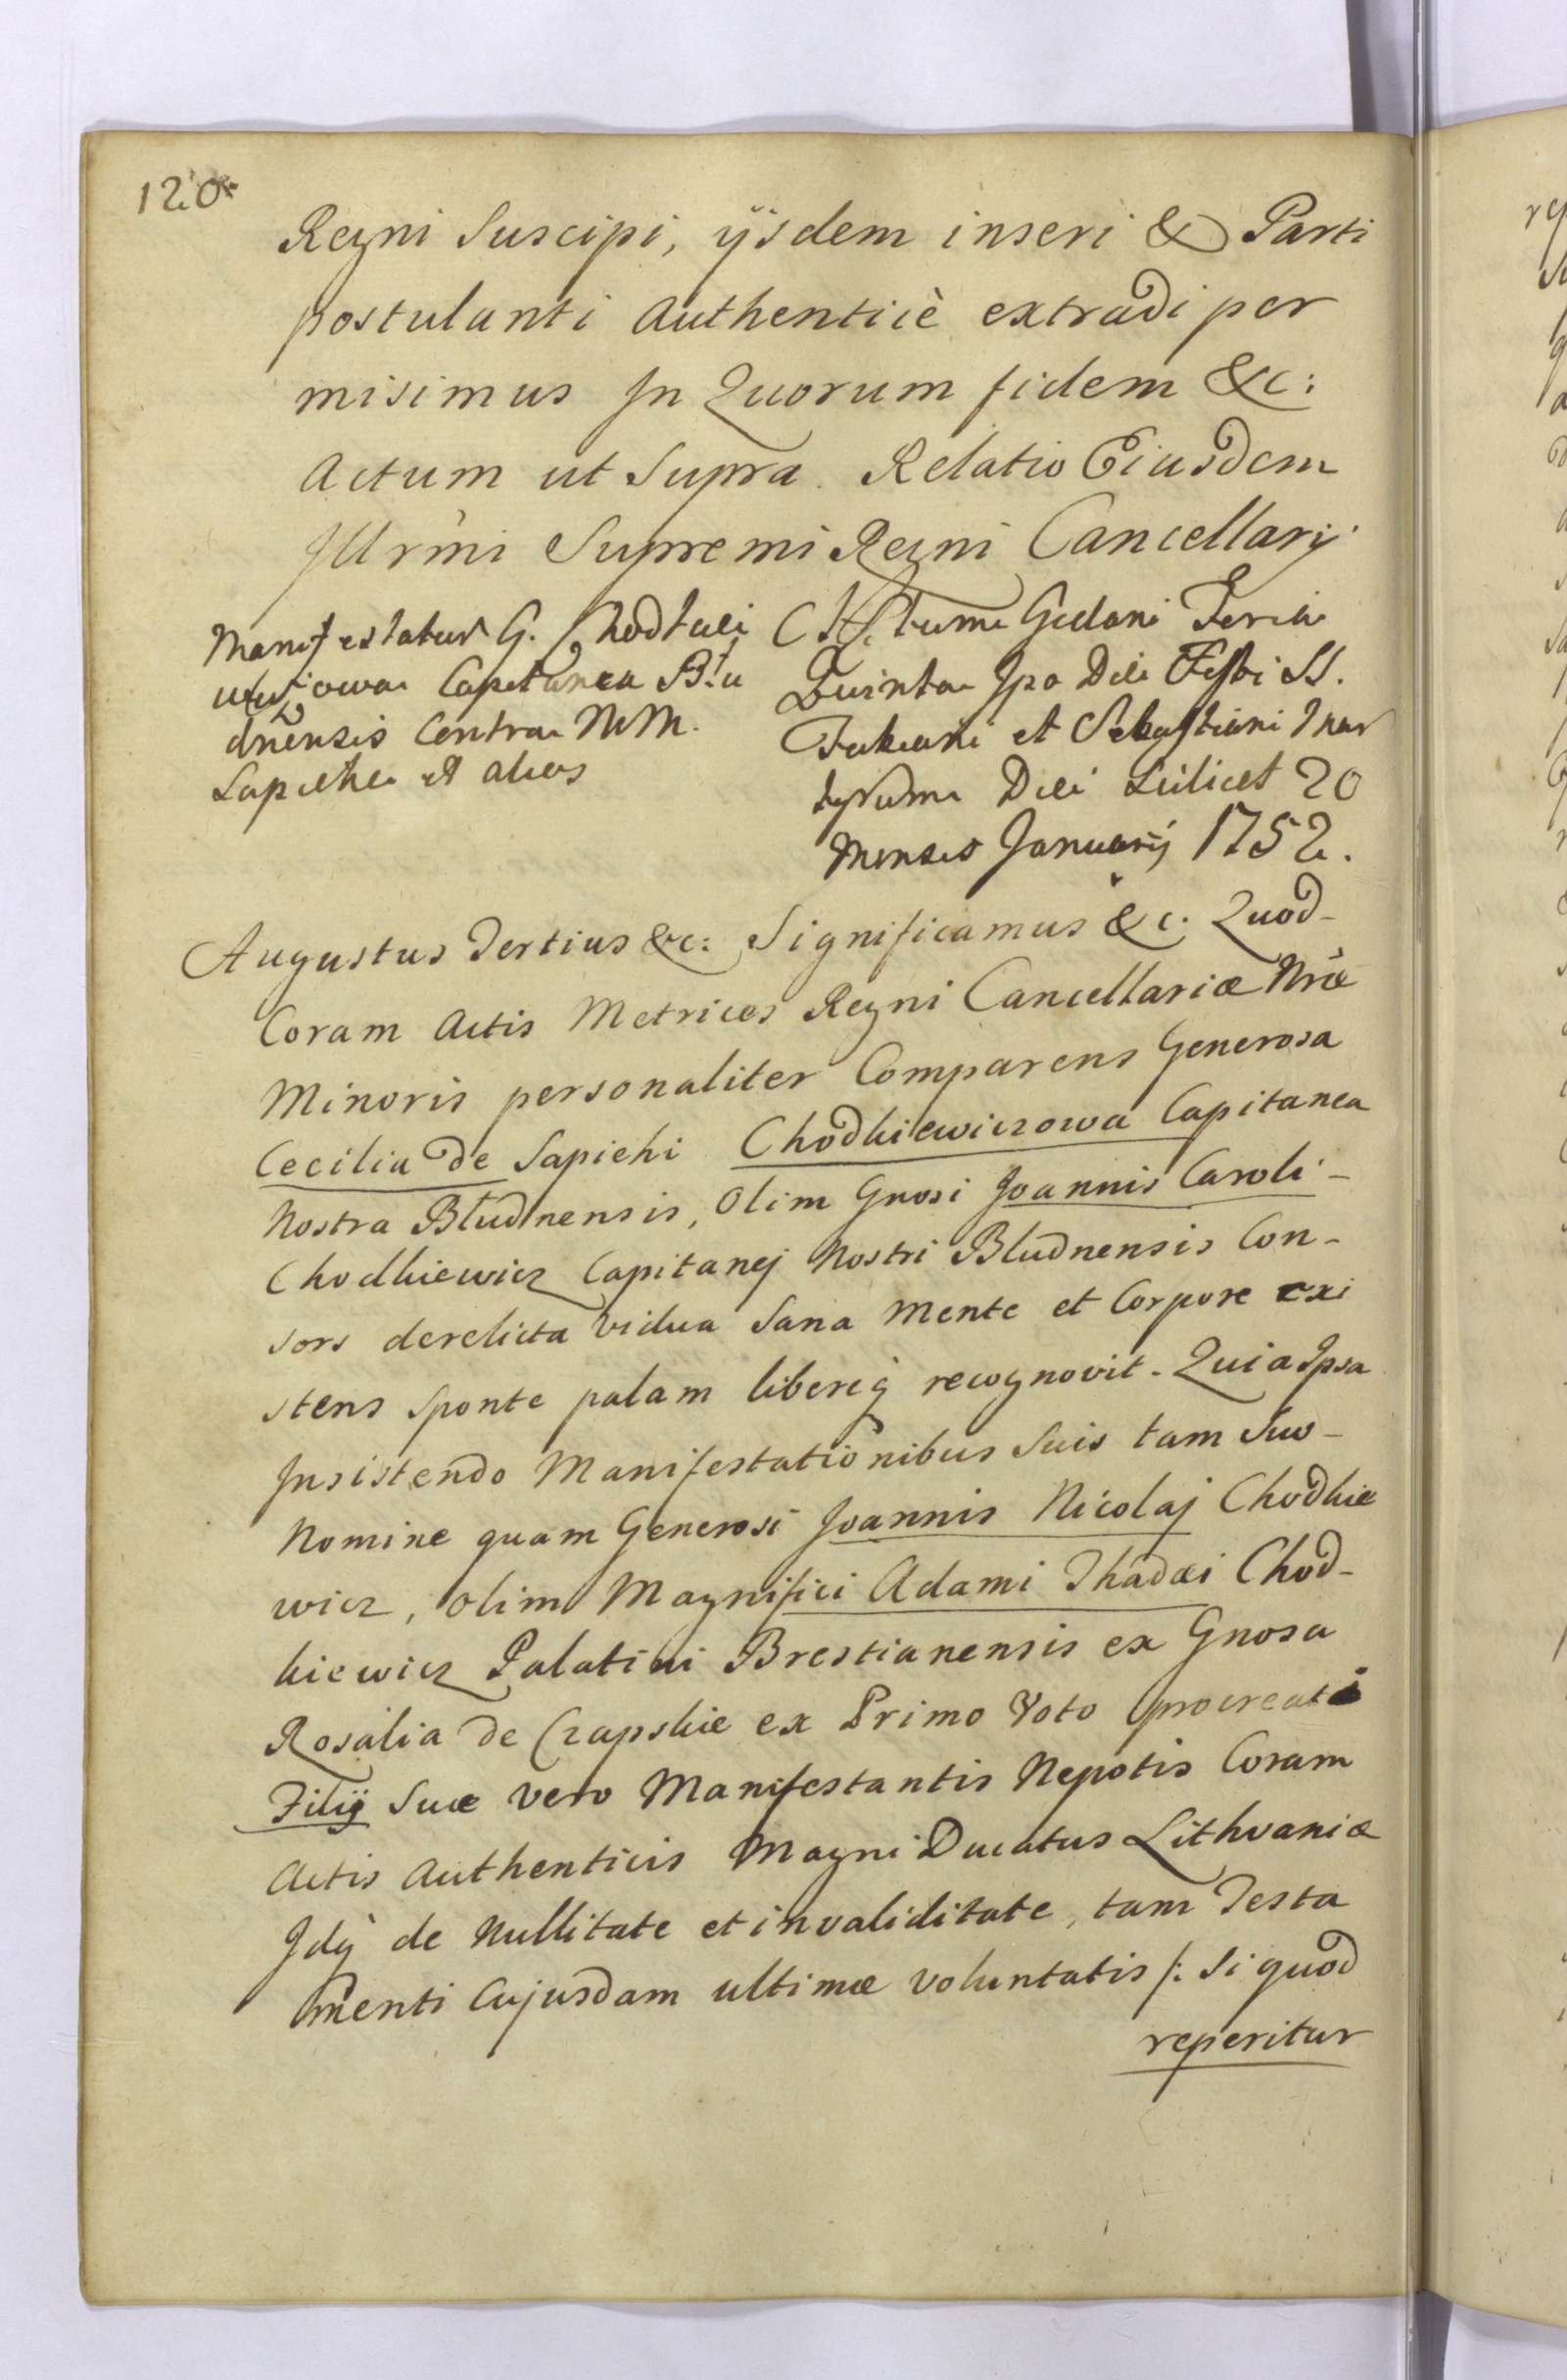 120.
Regni Suscipi, ijsdem inseri & Parti
postulanti Authenticè extradi per
misimus Jn Quorum fidem &c:
Actum ut Supra. Relatio Eiusdem
Jllrmi Supremi Regni Cancellarij
Manifestatur G.
owa Capitanea Blu
dnensis Contra MM.
Sapieha et alios
Actum Gedani Feria
Quinta Jpo Die Festi SS.
Fabiani et Sebastiani Mar
tyrum Die Scilicet 20
Mensis Januarij 1752.
Augustus Tertius &c: Significamus &c. Quod-
Coram Actis Metrices Regni Cancellariæ Nræ
Minoris personaliter Comparens Generosa
Cecilia De Sapiehi Chodkiewiczowa Capitanea
Nostra Bludnensis, Olim Gnosi Joannis Caroli-
Chodkiewicz Capitanej Nostri Bludnensis Con-
sors derelicta vidua Sana Mente et Corpore exi
stens sponte palam libereq recognovit. Quia Jpsa
Jnsistendo Manifestationibus Suis tam Suo-
Nomine quam Generosi Joannis Nicolaj Chodkie
wicz, olim Magnifici Adami Thadæi Chod-
kiewicz Palatini Brestianensis ex Gnosa
Rosalia De Czapskie ex Primo Voto procreati
Filij Suæ vero Manifestantis Nepotis Coram
Actis Authenticis Magni Ducatus Lithvaniæ
Jdq de Nullitate et invaliditate, tam Testa
menti Cujusdam ultimæ voluntatis /: Si quod
reperitur